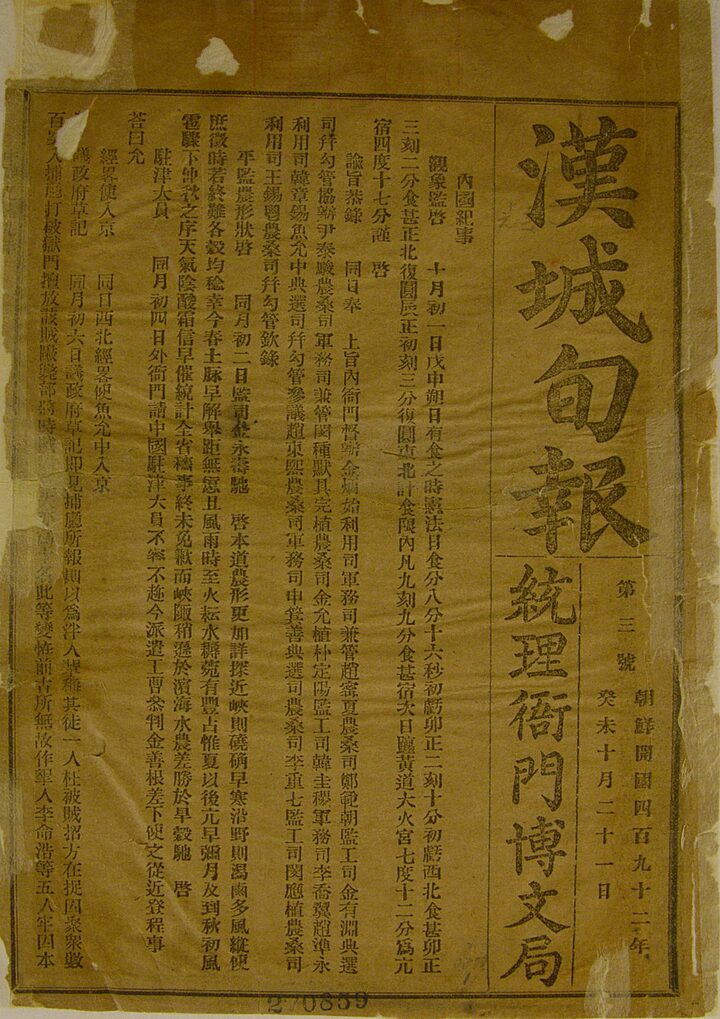 漢城旬報
第三號
朝鮮開國四百九十二年
癸未十月二十一日
統理衙門博文局
內國紀事
觀象監啓　十月初一日戊申朔日有食之時憲法日食分八分十六秒初虧卯正二刻十分初虧西北食甚卯正
三刻二分食甚正北復圓辰正初刻三分復圓東北計食限內凡九刻九分食甚宿次日躔黃道大火宮七度十二分爲亢
宿四度十七分謹　啓
諭旨恭錄　同日奉　上旨內衙門督辦金炳始利用司軍務司兼管趙寗夏農桑司鄭範朝監工司金有淵典選
司幷勾管協辦尹泰駿農桑司軍務司兼管閔種默具完植農桑司金允植朴定陽監工司韓圭稷軍務司李喬翼趙準永
利用司韓章錫魚允中典選司幷勾管參議趙東熙農桑司軍務司申箕善典選司農桑司李重七監工司閔應植農桑司
利用司王錫鬯農桑司幷勾管欽錄
平監農形狀啓　同月初二日監司金永壽馳　啓本道農形更加詳探近峽則磽确早寒沿野則潟鹵多風縱使
庶徵時若終難各穀均稔幸今春土脉早解舉趾無愆丑風雨時至火耘水耨菀有豐占惟夏以後元旱彌月及到秋初風
雹驟下仲秋之序天氣陰酸霜信早催統計全省穡事終未免歉而峽陬稍遜於濱海水農差勝於旱穀馳　啓
駐津大員　同月初四日外衙門請中國駐津大員不容不趁今派遣工曹參判金善根差下使之從近登程事
答曰允
經畧使入京　同日西北經畧使魚允中入京
議政府草記　同月初六日議政府草記卽見捕廳所報則以爲泮人　其徒一人杜被賊招方在捉囚聚衆數
百　入捕廳打破獄門擅放該賊　此等變恠前古所無故作拏人李命浩等五人牢囚本
270859